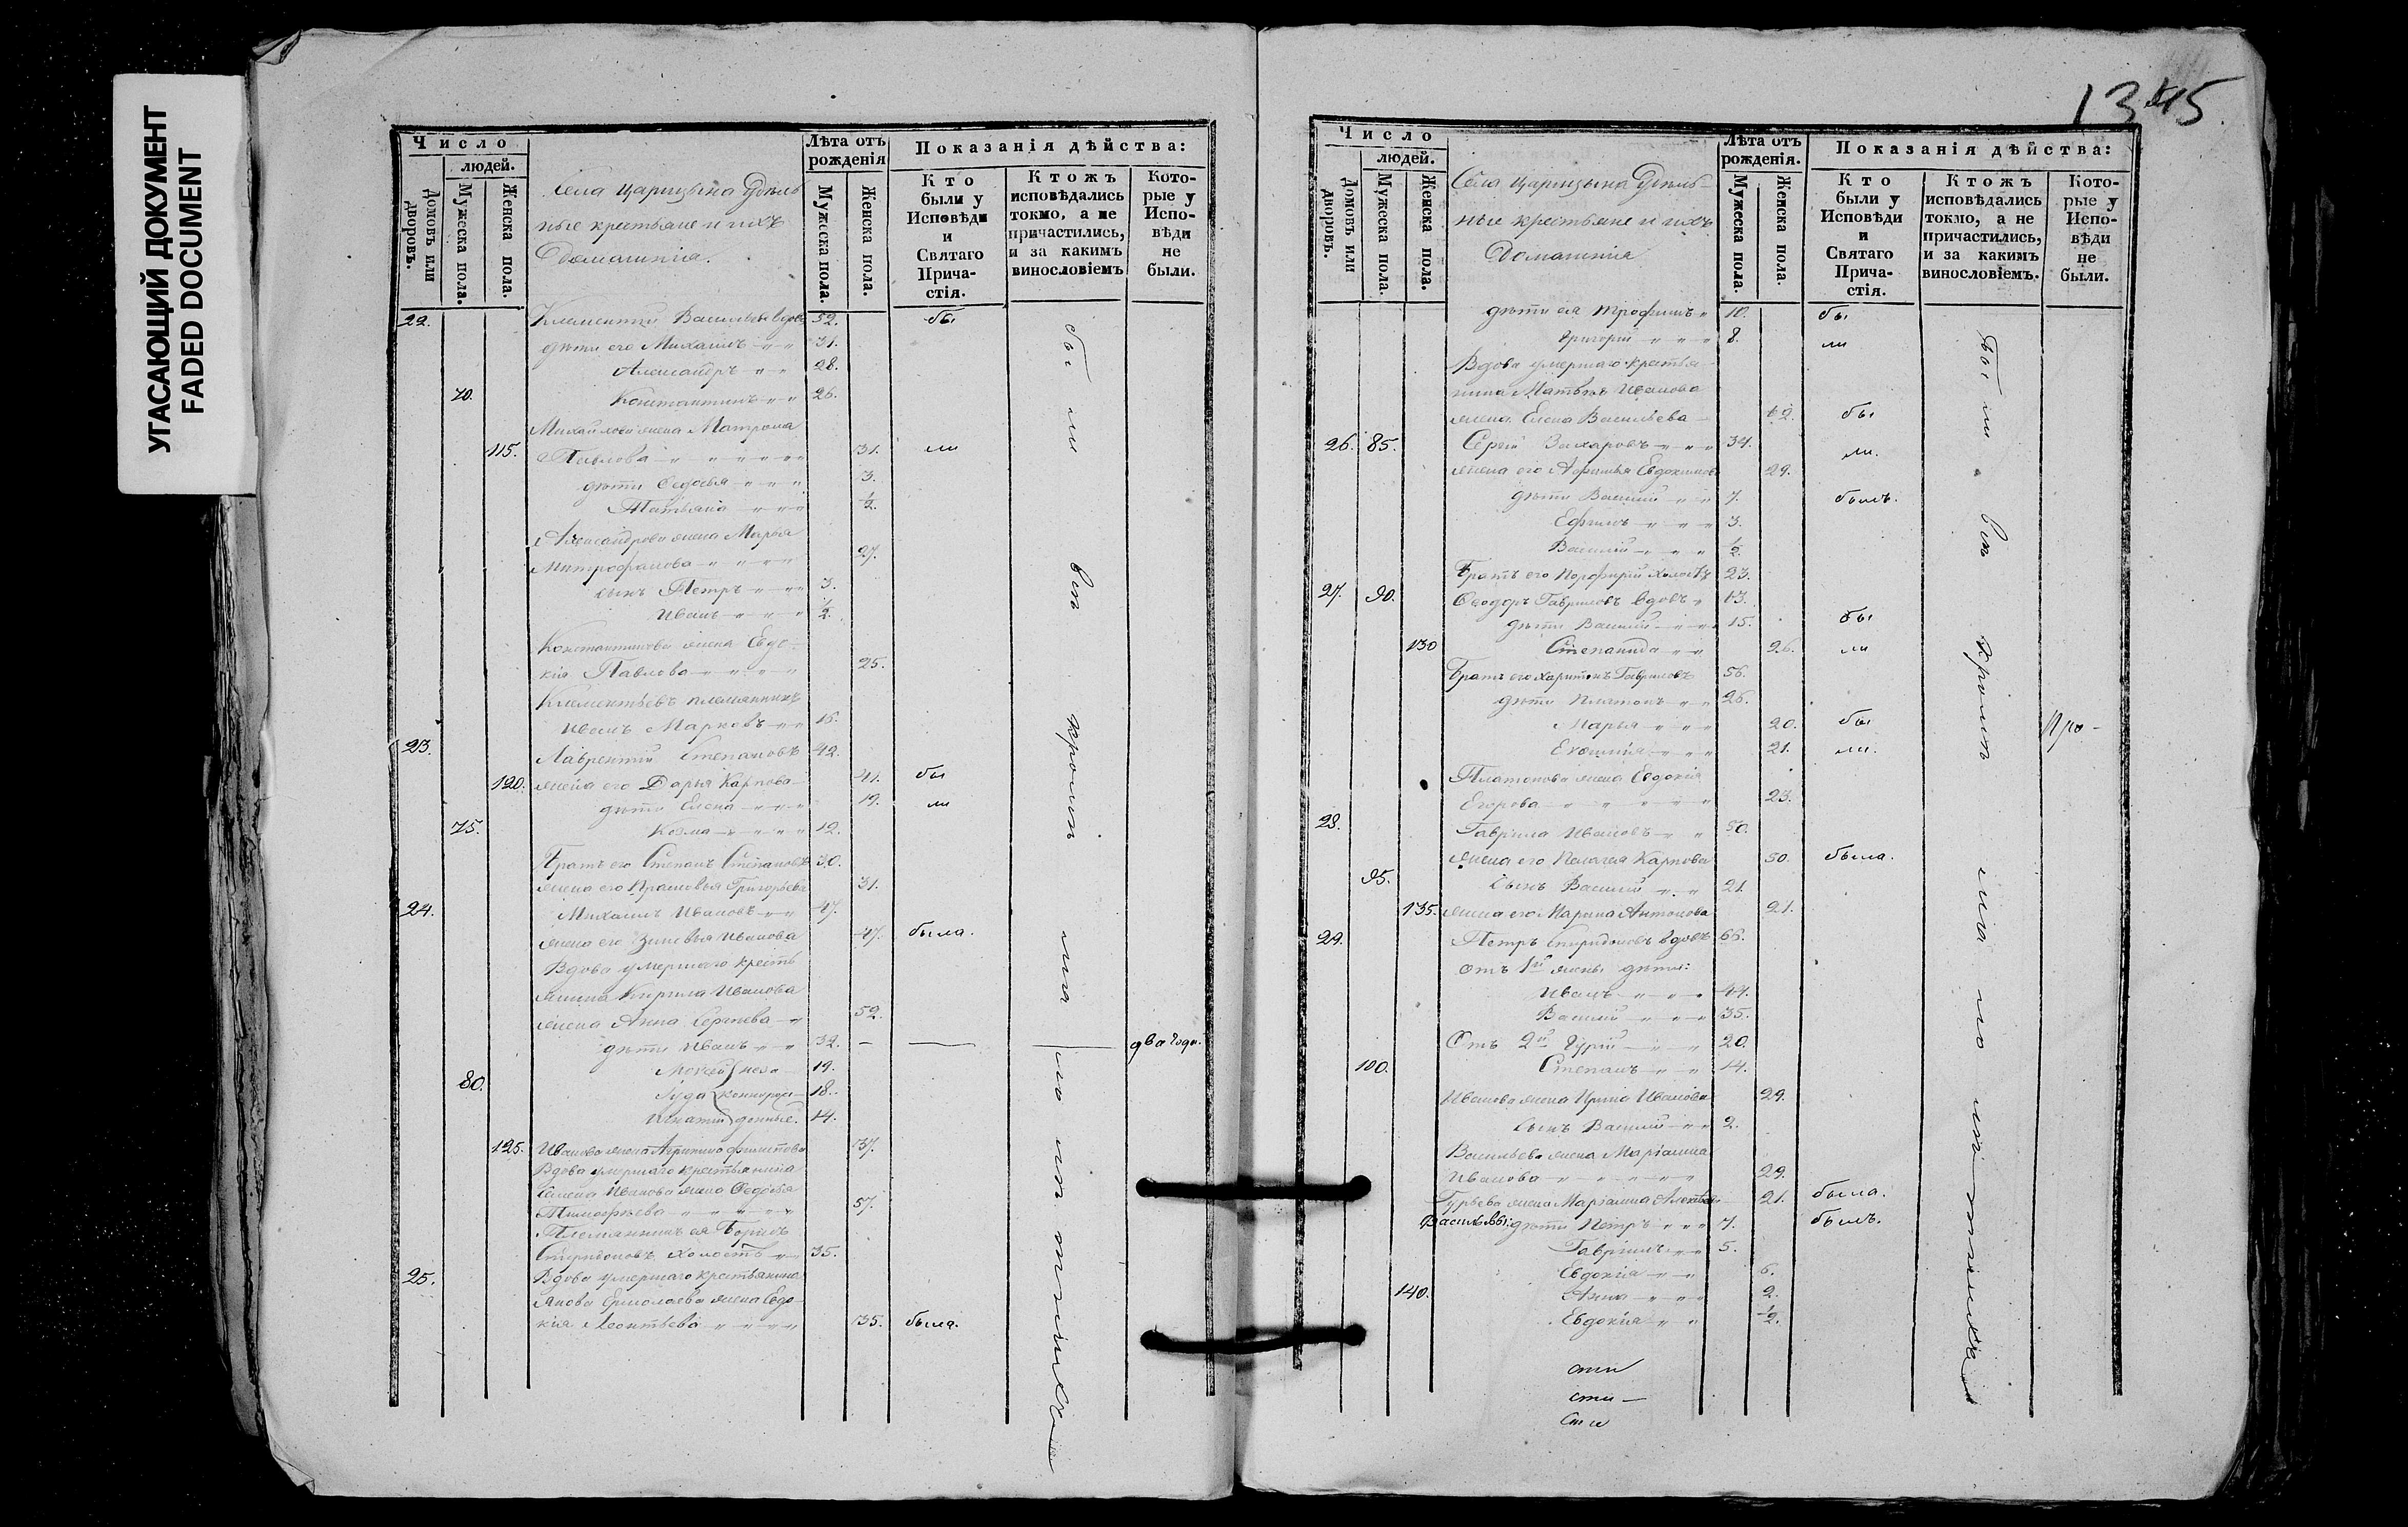 УГАСАЮЩИЙ ДОКУМЕНТ
FADED DOCUMENT
Число
людей.
Домовъ или дворовъ.
Мужеска пола.
Женска пола.
Села Царицына Удѣль
ные крестьяне и ихъ
Домашнія.
Лѣта отъ рожденія
Мужеска пола.
Женска пола.
Показанія дѣйства:
Кто были у Исповѣди и Святаго Прича-стія.
Ктожъ исповѣдались токмо, а не причастились, и за какимъ винословіемъ
Кото-рые у Испо-вѣди не были.
22. Климентій Васильевъ вдовъ 52. бы
дѣти его Михаилъ 31.
Александръ 28.
70. Константинъ 26.
Михайлова жена Матрона
115. Павлова 31. ли
дѣти Ѳедосья 3.
Татьяна ½.
Александрова жена Марья
Митрофанова 27.
сынъ Петръ 3.
Иванъ ½.
Константинова жена Евдо-
кія Павлова 25.
Климентьевъ племянникъ
Иванъ Марковъ 16.
23. Лаврентій Степановъ 42.
120. жена его Дарья Карпова 41. бы
дѣти Елена 19. ли
75. Козма 12.
Братъ его Степанъ Степановъ 30.
жена его Прасковья Григорьева 31.
24. Михаилъ Ивановъ 47.
жена его Зиновья Иванова 47. была.
Вдова умершаго кресть
янина Кирила Иванова
жена Анна Сергѣева 52.
дѣти Иванъ 32. — два года.
Мокей 19.
80. Іуда 18.
Игнатій 14.
125. Иванова жена 37.
Вдова умершаго крестьянина
Семена Иванова жена Ѳедосья
Тимофѣева 57.
Племянникъ ея Борисъ
Спиридоновъ холостъ 35.
25. Вдова умершаго крестьянина
Якова Ермолаева жена Евдо-
кія Леонтьева 35. была.
1345
Число
людей.
Домовъ или дворовъ.
Мужеска пола.
Женска пола.
Села Царицына Удѣль-
ные крестьяне и ихъ
Домашнія
Лѣта отъ рожденія.
Мужеска пола.
Женска пола.
Показанія дѣйства:
Кто были у Исповѣди и Святаго Прича-стія.
Ктожъ исповѣдались токмо, а не причастились, и за какимъ винословіемъ.
Кото-рые у Испо-вѣди не были.
дѣти ея Трофимъ 10. бы
Григорій 8. ли
Вдова умершаго крестья-
нина Матвѣя Иванова
жена Елена Васильева 62. бы
26. 85. Сергій Захаровъ 34. ли.
жена его Афимья Евдокимова 29.
дѣти Василій 7. былъ.
Ефимъ 3.
Василій ½.
Братъ его Порфирій холостъ 23.
27. 90. Ѳеодоръ Гавриловъ вдовъ
дѣти Василій 15. бы
130 Степанида 26. ли
Братъ его Харитонъ Гавриловъ 56.
дѣти Платонъ 26.
Марья 20. бы
21. ли.
Платонова жена Евдокія
Егорова 23.
28. Гаврила Ивановъ 50.
жена его Пелагея Карпова 50. была.
95. сынъ Василій 21.
135. жена его Марина Антонова 21.
29. Петръ Спиридоновъ вдовъ 66.
Отъ 1й жены дѣти:
Иванъ 44.
Василій 35.
Отъ 2й Гурій 20.
100. Степанъ 14.
Иванова жена Ирина Иванова 29.
сынъ Василій 2.
Васильева жена Маріанна
Иванова 29.
Гурьева жена Маріанна 21. была.
Васильевы: дѣти Петръ 7. былъ.
Гавріилъ 5.
Евдокія 6.
140. Анна 2.
Евдокія ½.
Про-
сти
сти —
сти